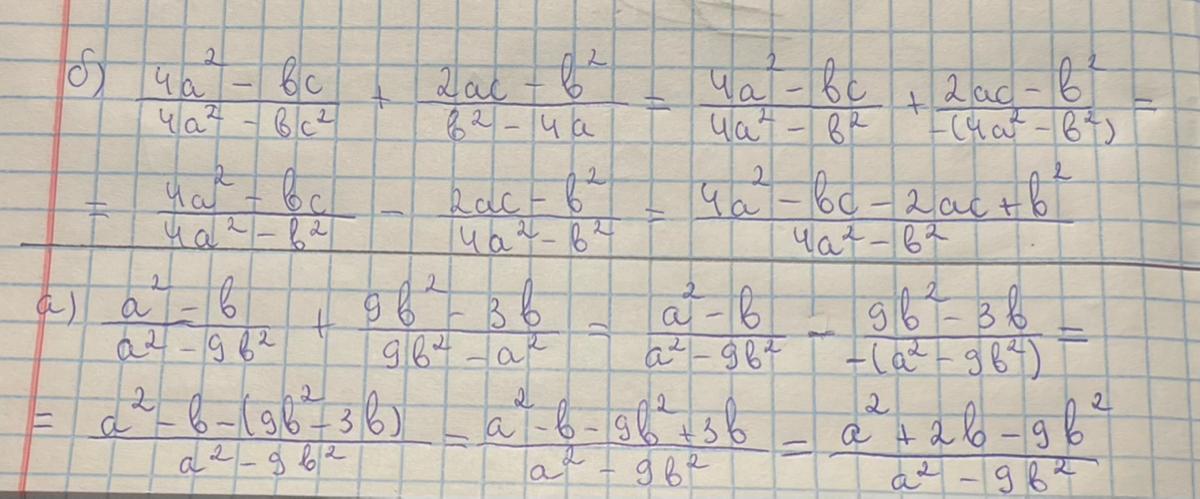 б) (4a² - bc)/(4a² - bc²) + (2ac - b²)/(b² - 4a) = (4a² - bc)/(4a² - b²) + (2ac - b²)/(-(4a² - b²)) =
= (4a² - bc)/(4a² - b²) - (2ac - b²)/(4a² - b²) = (4a² - bc - 2ac + b²)/(4a² - b²)
а) (a² - b)/(a² - 9b²) + (9b² - 3b)/(9b² - a²) = (a² - b)/(a² - 9b²) - (9b² - 3b)/(-(a² - 9b²)) =
= (a² - b - (9b² - 3b))/(a² - 9b²) = (a² - b - 9b² + 3b)/(a² - 9b²) = (a² + 2b - 9b²)/(a² - 9b²)